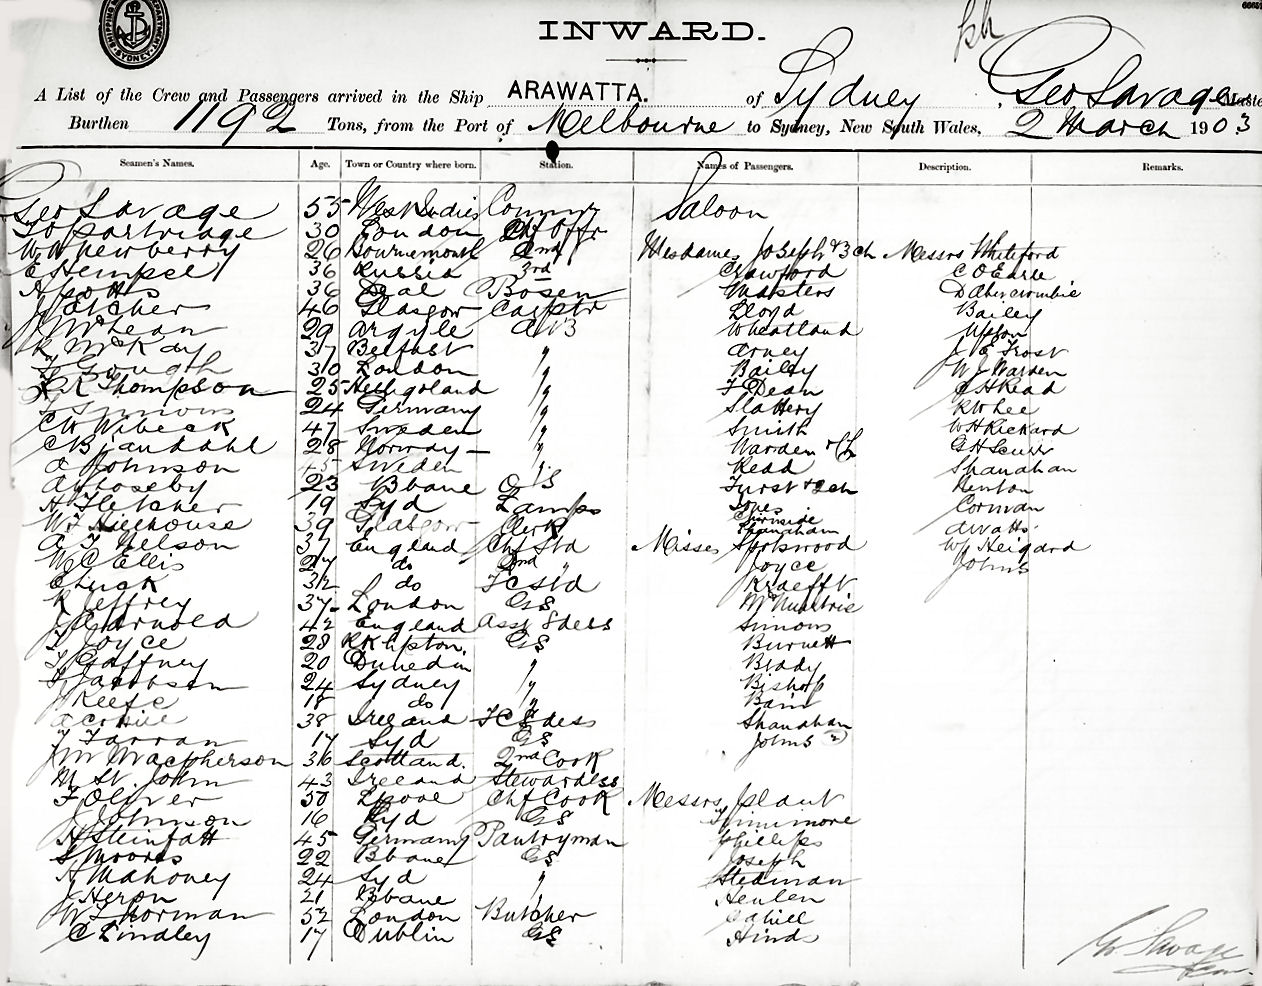 INWARD.
A List of the Crew and Passengers arrived in the Ship ARAWATTA. of Sydney Geo Savage Master
Burthen 1192 Tons, from the Port of Melbourne to Sydney, New South Wales, 2 March 1903
Seamen's Names. Age. Town or Country where born. Station. Names of Passengers. Description. Remarks.
Geo Savage 55 West Indies Commr Saloon
Partridge 30 London Chf Offr
W Newberry 26 Bournemouth 2nd Mesdames Joseph & 3 ch Messrs Whiteford
E Hempel 36 Russia 3rd Crawford C O Earle
36 Deal Bosen Masters D Abercrombie
46 Glasgow Carptr Lloyd Bailey
McLean 29 Argyle AB Wheatland Upton
R McKay 37 Belfast " Arney J E Frost
Gough 30 London " Bailey W J Warden
R Thompson 25 Heligoland " F Dean Read
Simons 24 Germany " Slattery R W Lee
C W Wibeck 47 Sweden " Smith W H Rickard
C Bjandahl 28 Norway " Warden G H Scurr
A Johnson 45 Sweden " Read Shanahan
A Loseby 23 Bbane O/S Furst & ch Renton
H Fletcher 19 Syd Lamps Jones Corman
W J Hillhouse 39 Glasgow Clerk Chirnside A Watts
Shanahan
A J Nelson 37 England Chf Std Misses Spotswood Heigard
W C Ellis 27 do 2nd " Joyce Johns
E Luck 32 do FCStd Kraefft
R Jeffrey 37 London GS
J A Arnold 42 England Asst Sdess Simons
Joyce 28 GS Burnett
T Gaffney 20 Dunedin " Brady
Jacobson 24 Sydney " Bishop
J Keefe 18 do " Bain
38 Ireland FC Sdess Shanahan
Farran 17 Syd GS Johns (2)
J M Macpherson 36 Scotland. 2nd Cook
M St. John 43 Ireland Stewardess
F Oliver 50 Lpool Chf Cook Messrs
J Johnson 16 Syd GS
H Steinfatt 45 Germany Pantryman Phillips
S Moores 22 Bbane GS Joseph
A Mahoney 24 Syd " Stedman
J Heron 21 Bbane
W Thorman 52 London Butcher Cahill
C Lindley 17 Dublin GS Hinds
Geo Savage